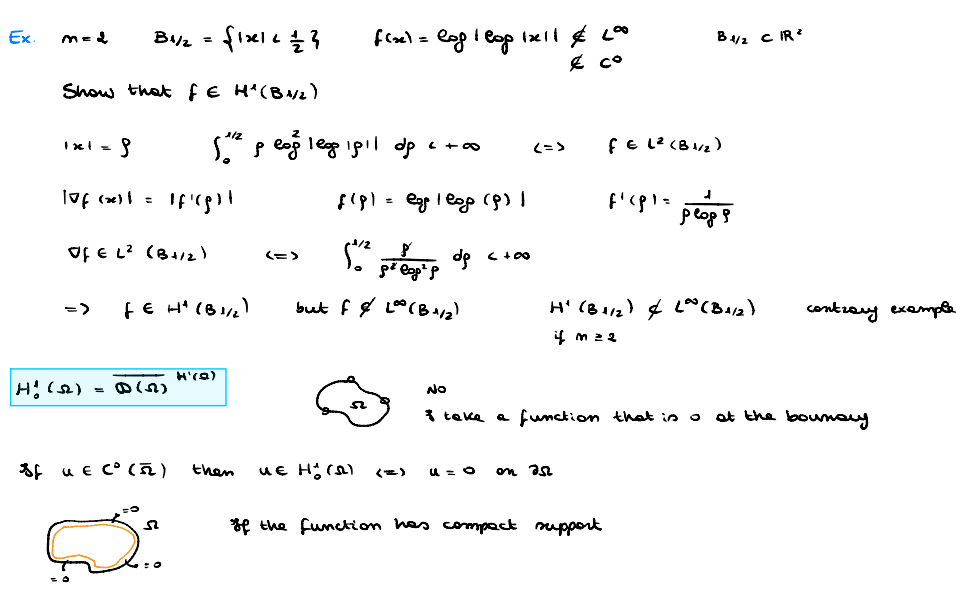 Ex. n=2 B1/2 = {|x| < 1/2} f(x) = log |log |x|| ∉ L∞ B1/2 ⊂ ℝ²
∉ C⁰
Show that f ∈ H¹(B1/2)
|x| = ρ ∫₀^{1/2} ρ log² |log |ρ|| dρ < +∞ <=> f ∈ L²(B1/2)
|∇f(x)| = |f'(ρ)| f(ρ) = log |log(ρ)| f'(ρ) = 1/(ρ log ρ)
∇f ∈ L²(B1/2) <=> ∫₀^{1/2} ρ/(ρ² log² ρ) dρ < +∞
=> f ∈ H¹(B1/2) but f ∉ L∞(B1/2) H¹(B1/2) ⊄ L∞(B1/2) contrary example
if n ≥ 2
H¹₀(Ω) = \overline{D(Ω)}^{H¹(Ω)} Ω NO
I take a function that is 0 at the bounary
If u ∈ C⁰(Ω̄) then u ∈ H¹₀(Ω) <=> u = 0 on ∂Ω
=0 Ω If the function has compact support
=0 =0